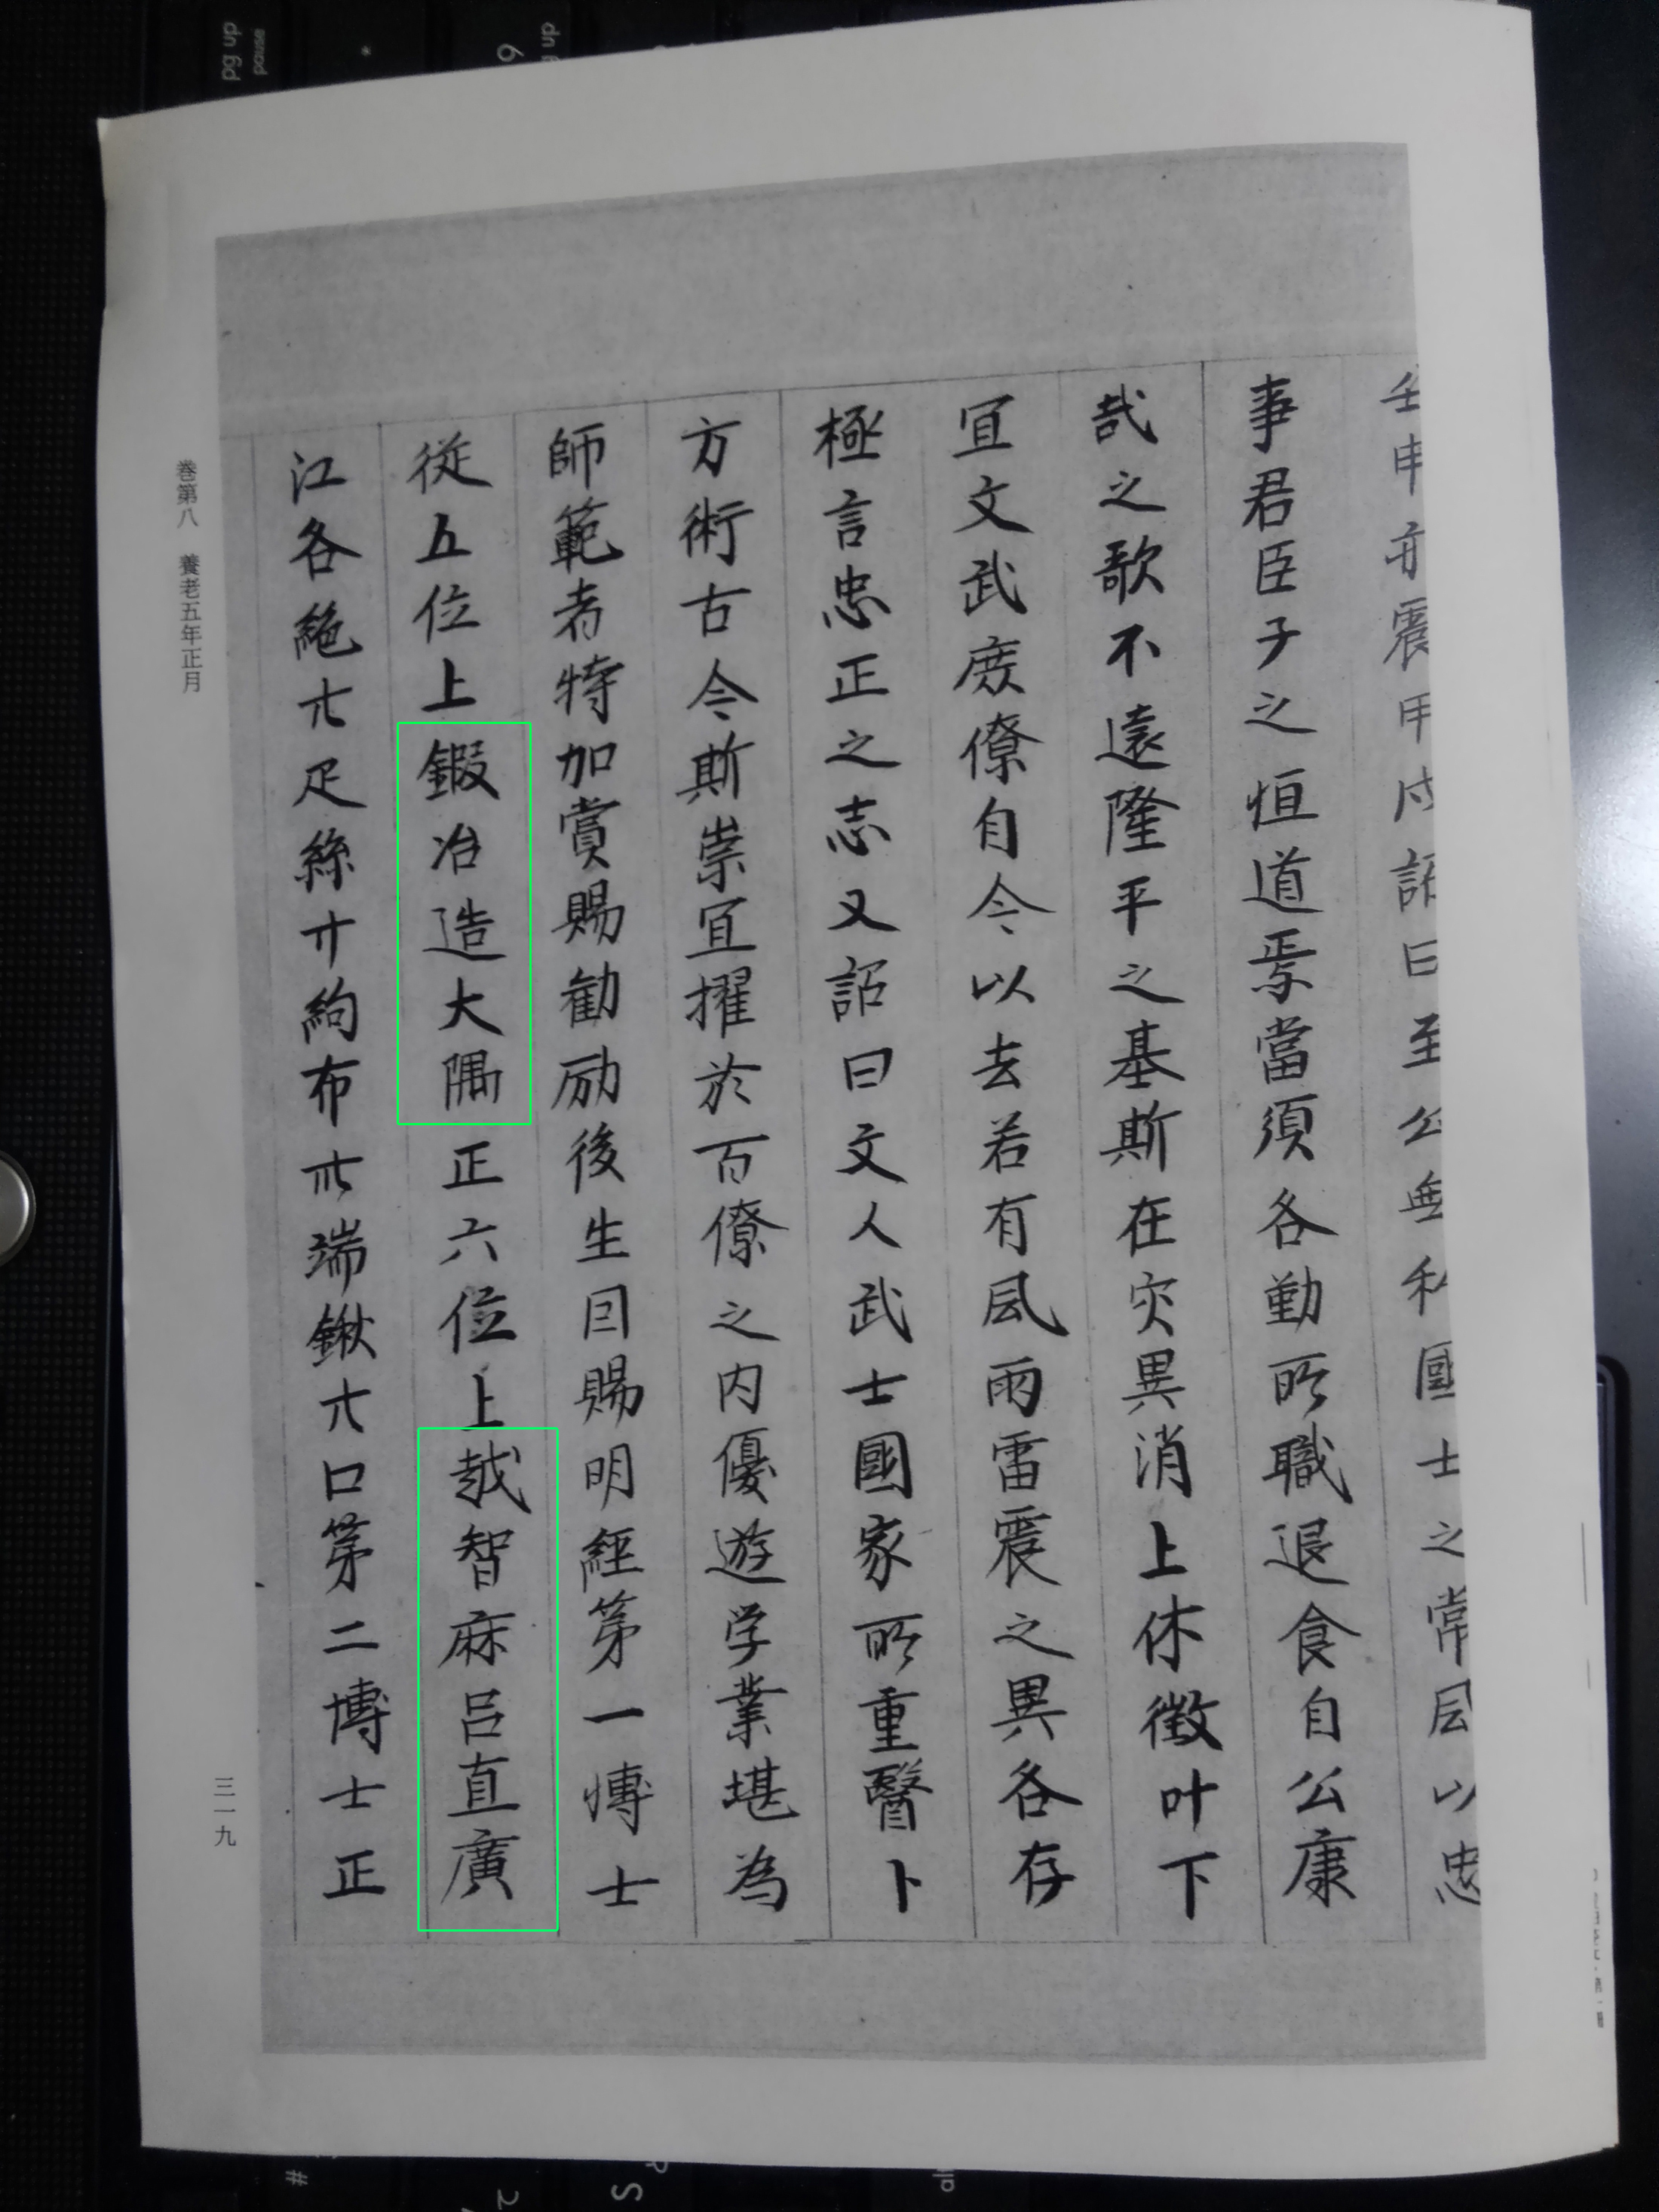 壬申亦震甲戌詔曰至公無私國士之常風以忠
事君臣子之恒道焉當須各勤所職退食自公康
哉之歌不遠隆平之基斯在灾異消上休徴叶下
宜文武庶僚自今以去若有風雨雷震之異各存
極言忠正之志又詔曰文人武士國家所重醫卜
方術古今斯崇宜擢於百僚之内優遊学業堪為
師範者特加賞賜勧励後生因賜明經第一博士
從五位上鍜冶造大隅正六位上越智麻呂直廣
江各絁廿疋絲廿絇布卅端鍬廿口第二博士正
巻第八 養老五年正月
三一九
pg up
pause
*
6
pg up
#
2
S
R
alt